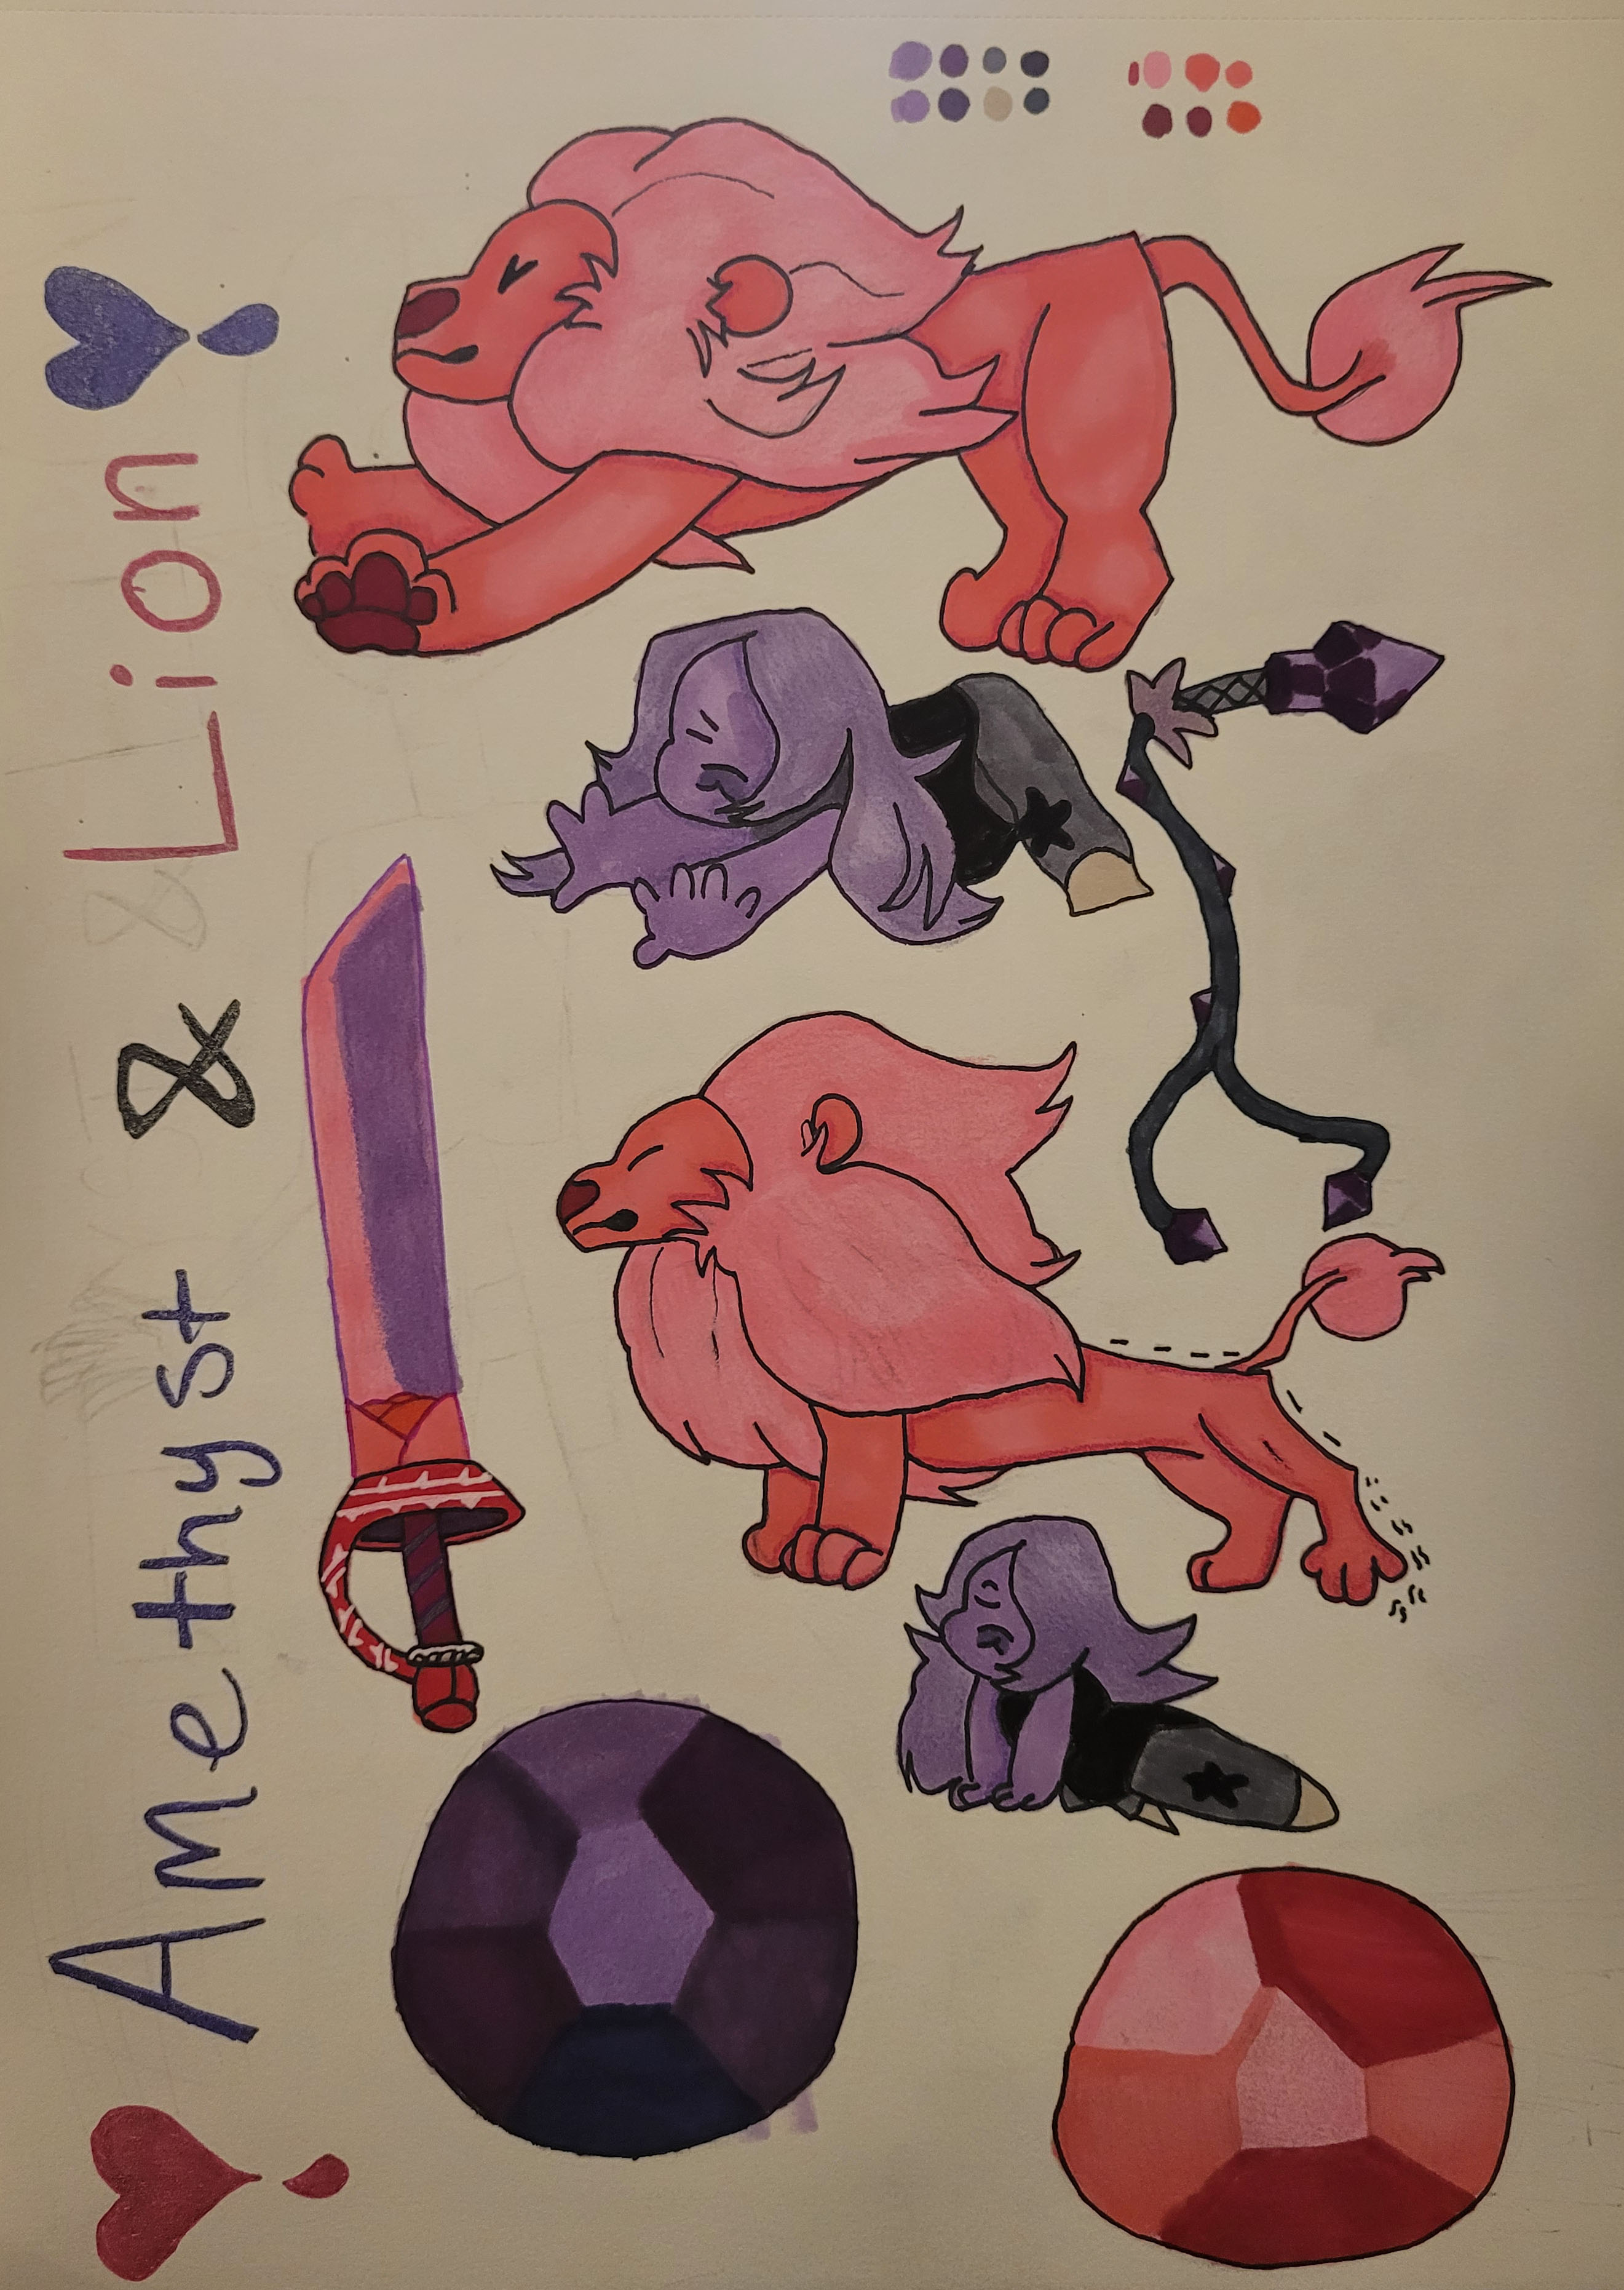 Amethyst & Lion